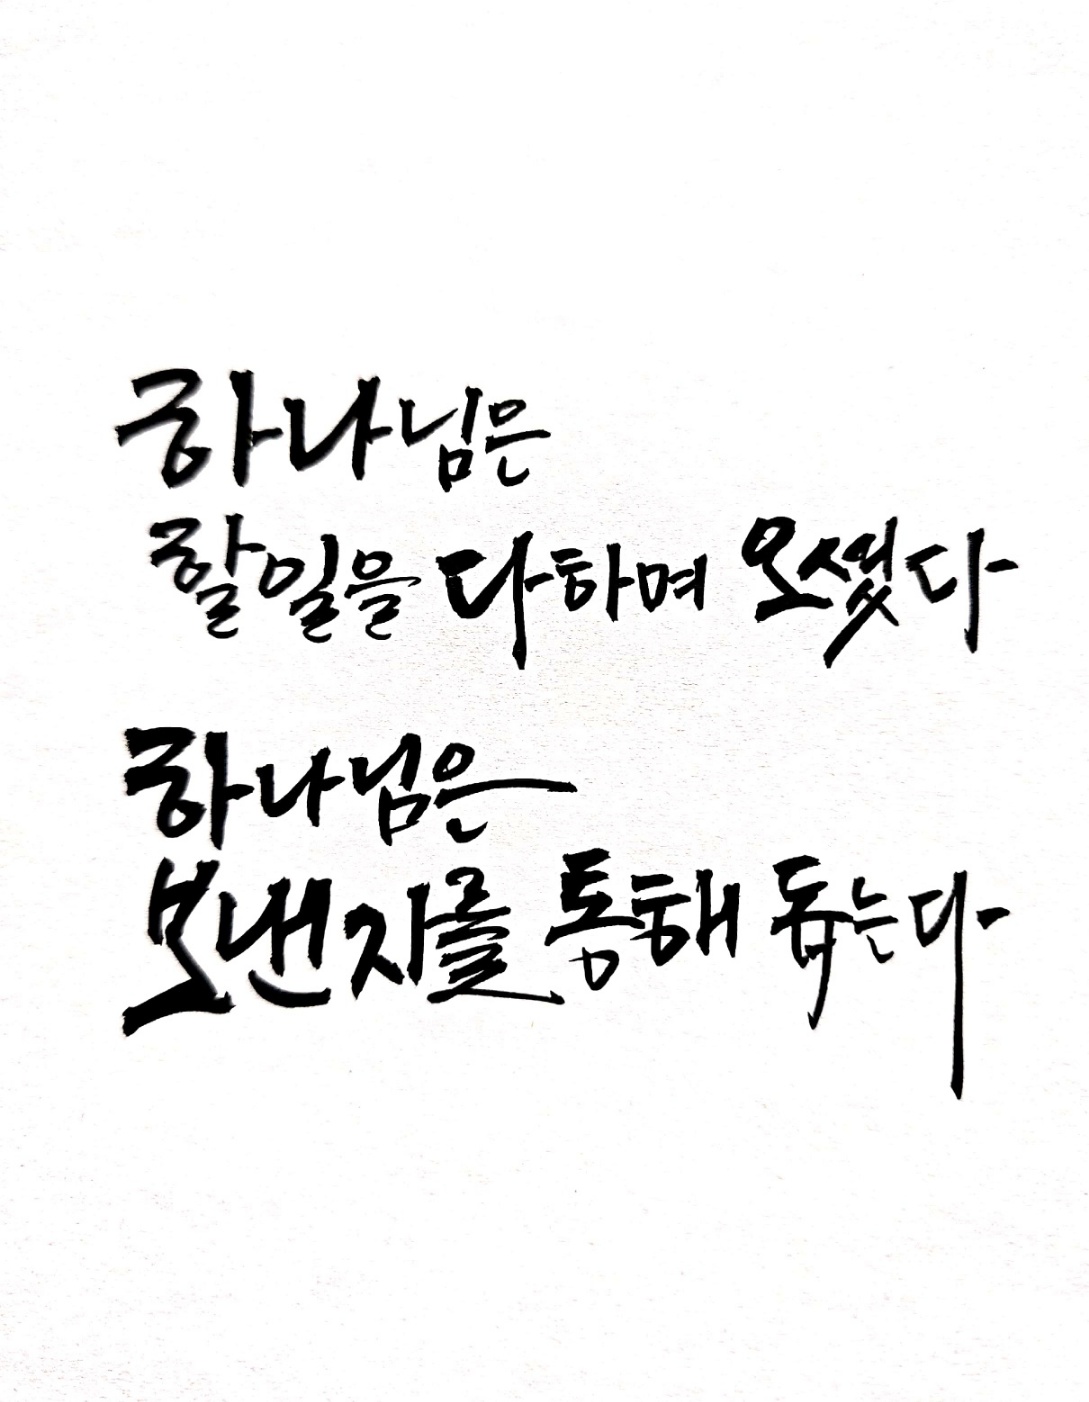 하나님은
할일을 다하며 오셨다
하나님은
보낸자를 통해 돕는다